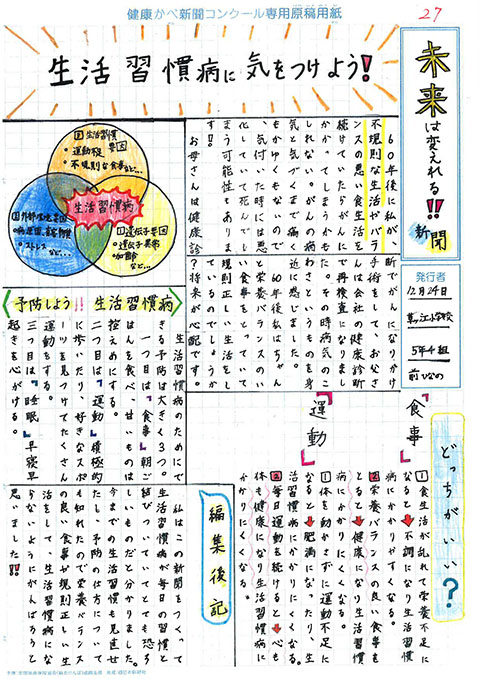 健康かべ新聞コンクール専用原稿用紙
27
未来は変えれる!!
新聞
発行者
12月24日
江小学校
5年4組
前ひなの
生活習慣病に気をつけよう!
60年後に私が、
不規則な生活やバラ
ンスの悪い食生活を
続けていたらがんに
かかってしまうかも
しれない。がんの病
気と気づくまで痛く
もかゆくもなので
、気付いた時には悪
化していて死んでし
まう可能性もありま
す!!
お母さんは健康診
断でがんになりかけ
手術をして、お父さ
んは会社の健康診断
で再検査になりまし
た。その時病気のこ
わさというものを身
近に感じました。
60年後私はちゃん
と栄養バランスのい
い食事をとっていて
規則正しい生活をし
ているのでしょうか
?将来が心配です。
1生活習慣要因
・運動不足
・不規則な食事など…
2外部環境要因
・病原体、有害物質
・ストレス
など…
3遺伝子要因
・遺伝子異常
・加齢
など…
生活習慣病
予防しよう!!生活習慣病
生活習慣病のためにで
きる予防は大きく3つ。
一つ目は『食事』朝ご
はんを食べ、甘いものは
控えめにする。
二つ目は『運動』積極的
に歩いたり、好きなスポ
ーツを見つけてたくさん
運動をする。
三つ目は『睡眠』早寝早
起きを心がける。
どっちがいい?
『食事』
1食生活が乱れて栄養不足に
なると➡不調になり生活習慣
病にかかりやすくなる。
2栄養バランスの良い食事を
とると➡健康になり生活習慣
病にかかりにくくなる。
『運動』
1体を動かさずに運動不足に
なると➡肥満になったり、生
活習慣病にかかりにくくなる。
2毎日運動を続けると➡心も
体も健康になり生活習慣病に
かかりにくくなる。
編集後記
私はこの新聞をつくって
生活習慣病が毎日の習慣と
結びついていてとても恐ろ
しいものだと分かりました。
今までの生活習慣も見直せ
たし、予防の仕方について
も知れたので栄養バランス
の良い食事や規則正しい生
活をして、生活習慣病にな
らないようにがんばろうと
思いました!!